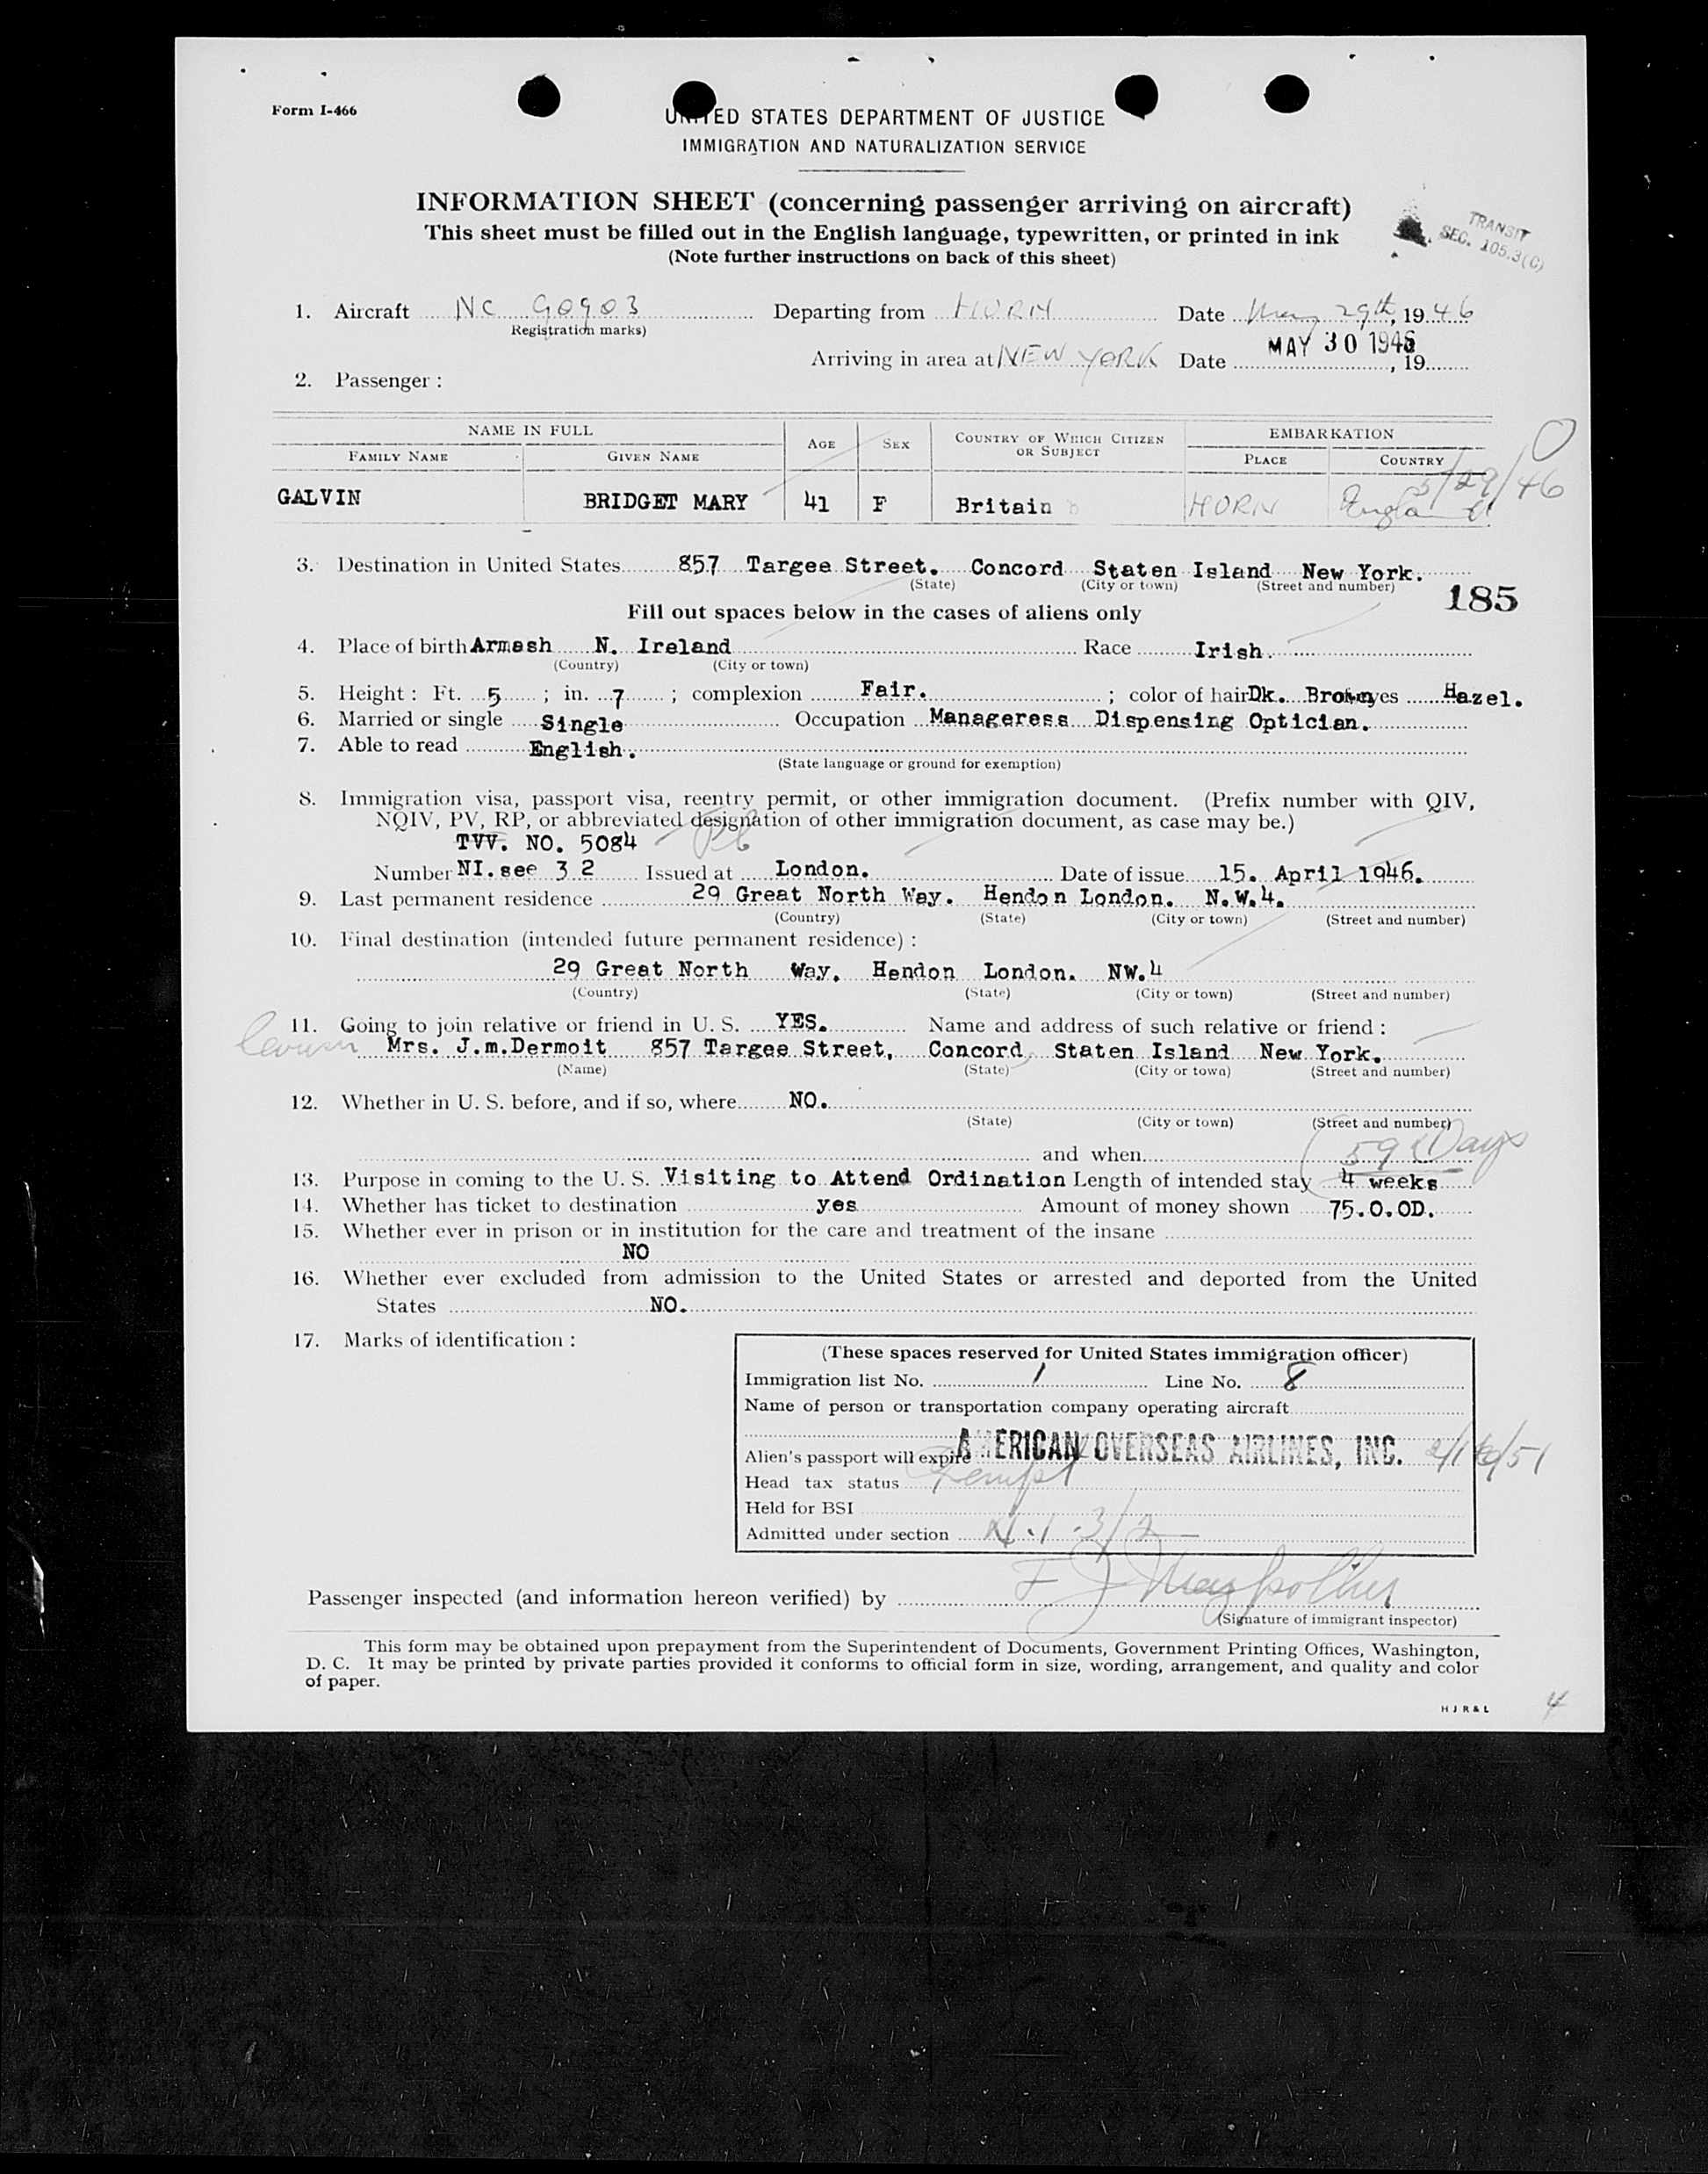 Form I-466
UNITED STATES DEPARTMENT OF JUSTICE
IMMIGRATION AND NATURALIZATION SERVICE
INFORMATION SHEET (concerning passenger arriving on aircraft)
This sheet must be filled out in the English language, typewritten, or printed in ink
(Note further instructions on back of this sheet)
TRANSIT
SEC. 105.3(C)
1. Aircraft NC 90903 Departing from HURN Date May 29th, 1946
(Registration marks)
Arriving in area at NEW YORK Date MAY 30 1946, 19
2. Passenger :
NAME IN FULL AGE SEX COUNTRY OF WHICH CITIZEN OR SUBJECT EMBARKATION
FAMILY NAME GIVEN NAME PLACE COUNTRY
5/29/46
GALVIN BRIDGET MARY 41 F Britain HURN England
3. Destination in United States 857 Targee Street. Concord Staten Island New York.
(State) (City or town) (Street and number)
185
Fill out spaces below in the cases of aliens only
4. Place of birth Armash N. Ireland Race Irish.
(Country) (City or town)
5. Height : Ft. 5 ; in. 7 ; complexion Fair. ; color of hair Dk. Brown eyes Hazel.
6. Married or single Single Occupation Manageress Dispensing Optician.
7. Able to read English.
(State language or ground for exemption)
8. Immigration visa, passport visa, reentry permit, or other immigration document. (Prefix number with QIV,
NQIV, PV, RP, or abbreviated designation of other immigration document, as case may be.)
TVV. NO. 5084
Number NI. see 3 2 Issued at London. Date of issue 15. April 1946.
9. Last permanent residence 29 Great North Way. Hendon London. N.W.4.
(Country) (State) (City or town) (Street and number)
10. Final destination (intended future permanent residence) :
29 Great North Way. Hendon London. NW.4
(Country) (State) (City or town) (Street and number)
11. Going to join relative or friend in U. S. YES. Name and address of such relative or friend :
Cousin Mrs. J.m.Dermoit 857 Targee Street, Concord, Staten Island New York.
(Name) (State) (City or town) (Street and number)
12. Whether in U. S. before, and if so, where NO.
(State) (City or town) (Street and number)
and when 59 Days
13. Purpose in coming to the U. S. Visiting to Attend Ordination Length of intended stay 4 weeks
14. Whether has ticket to destination yes Amount of money shown 75.0.0D.
15. Whether ever in prison or in institution for the care and treatment of the insane
NO
16. Whether ever excluded from admission to the United States or arrested and deported from the United
States NO.
17. Marks of identification :
(These spaces reserved for United States immigration officer)
Immigration list No. 1 Line No. 8
Name of person or transportation company operating aircraft
AMERICAN OVERSEAS AIRLINES, INC.
Alien's passport will expire 2/16/51
Head tax status Exempt
Held for BSI
Admitted under section 4.1.3/2
Passenger inspected (and information hereon verified) by
(Signature of immigrant inspector)
This form may be obtained upon prepayment from the Superintendent of Documents, Government Printing Offices, Washington,
D. C. It may be printed by private parties provided it conforms to official form in size, wording, arrangement, and quality and color
of paper.
H J R & L
4